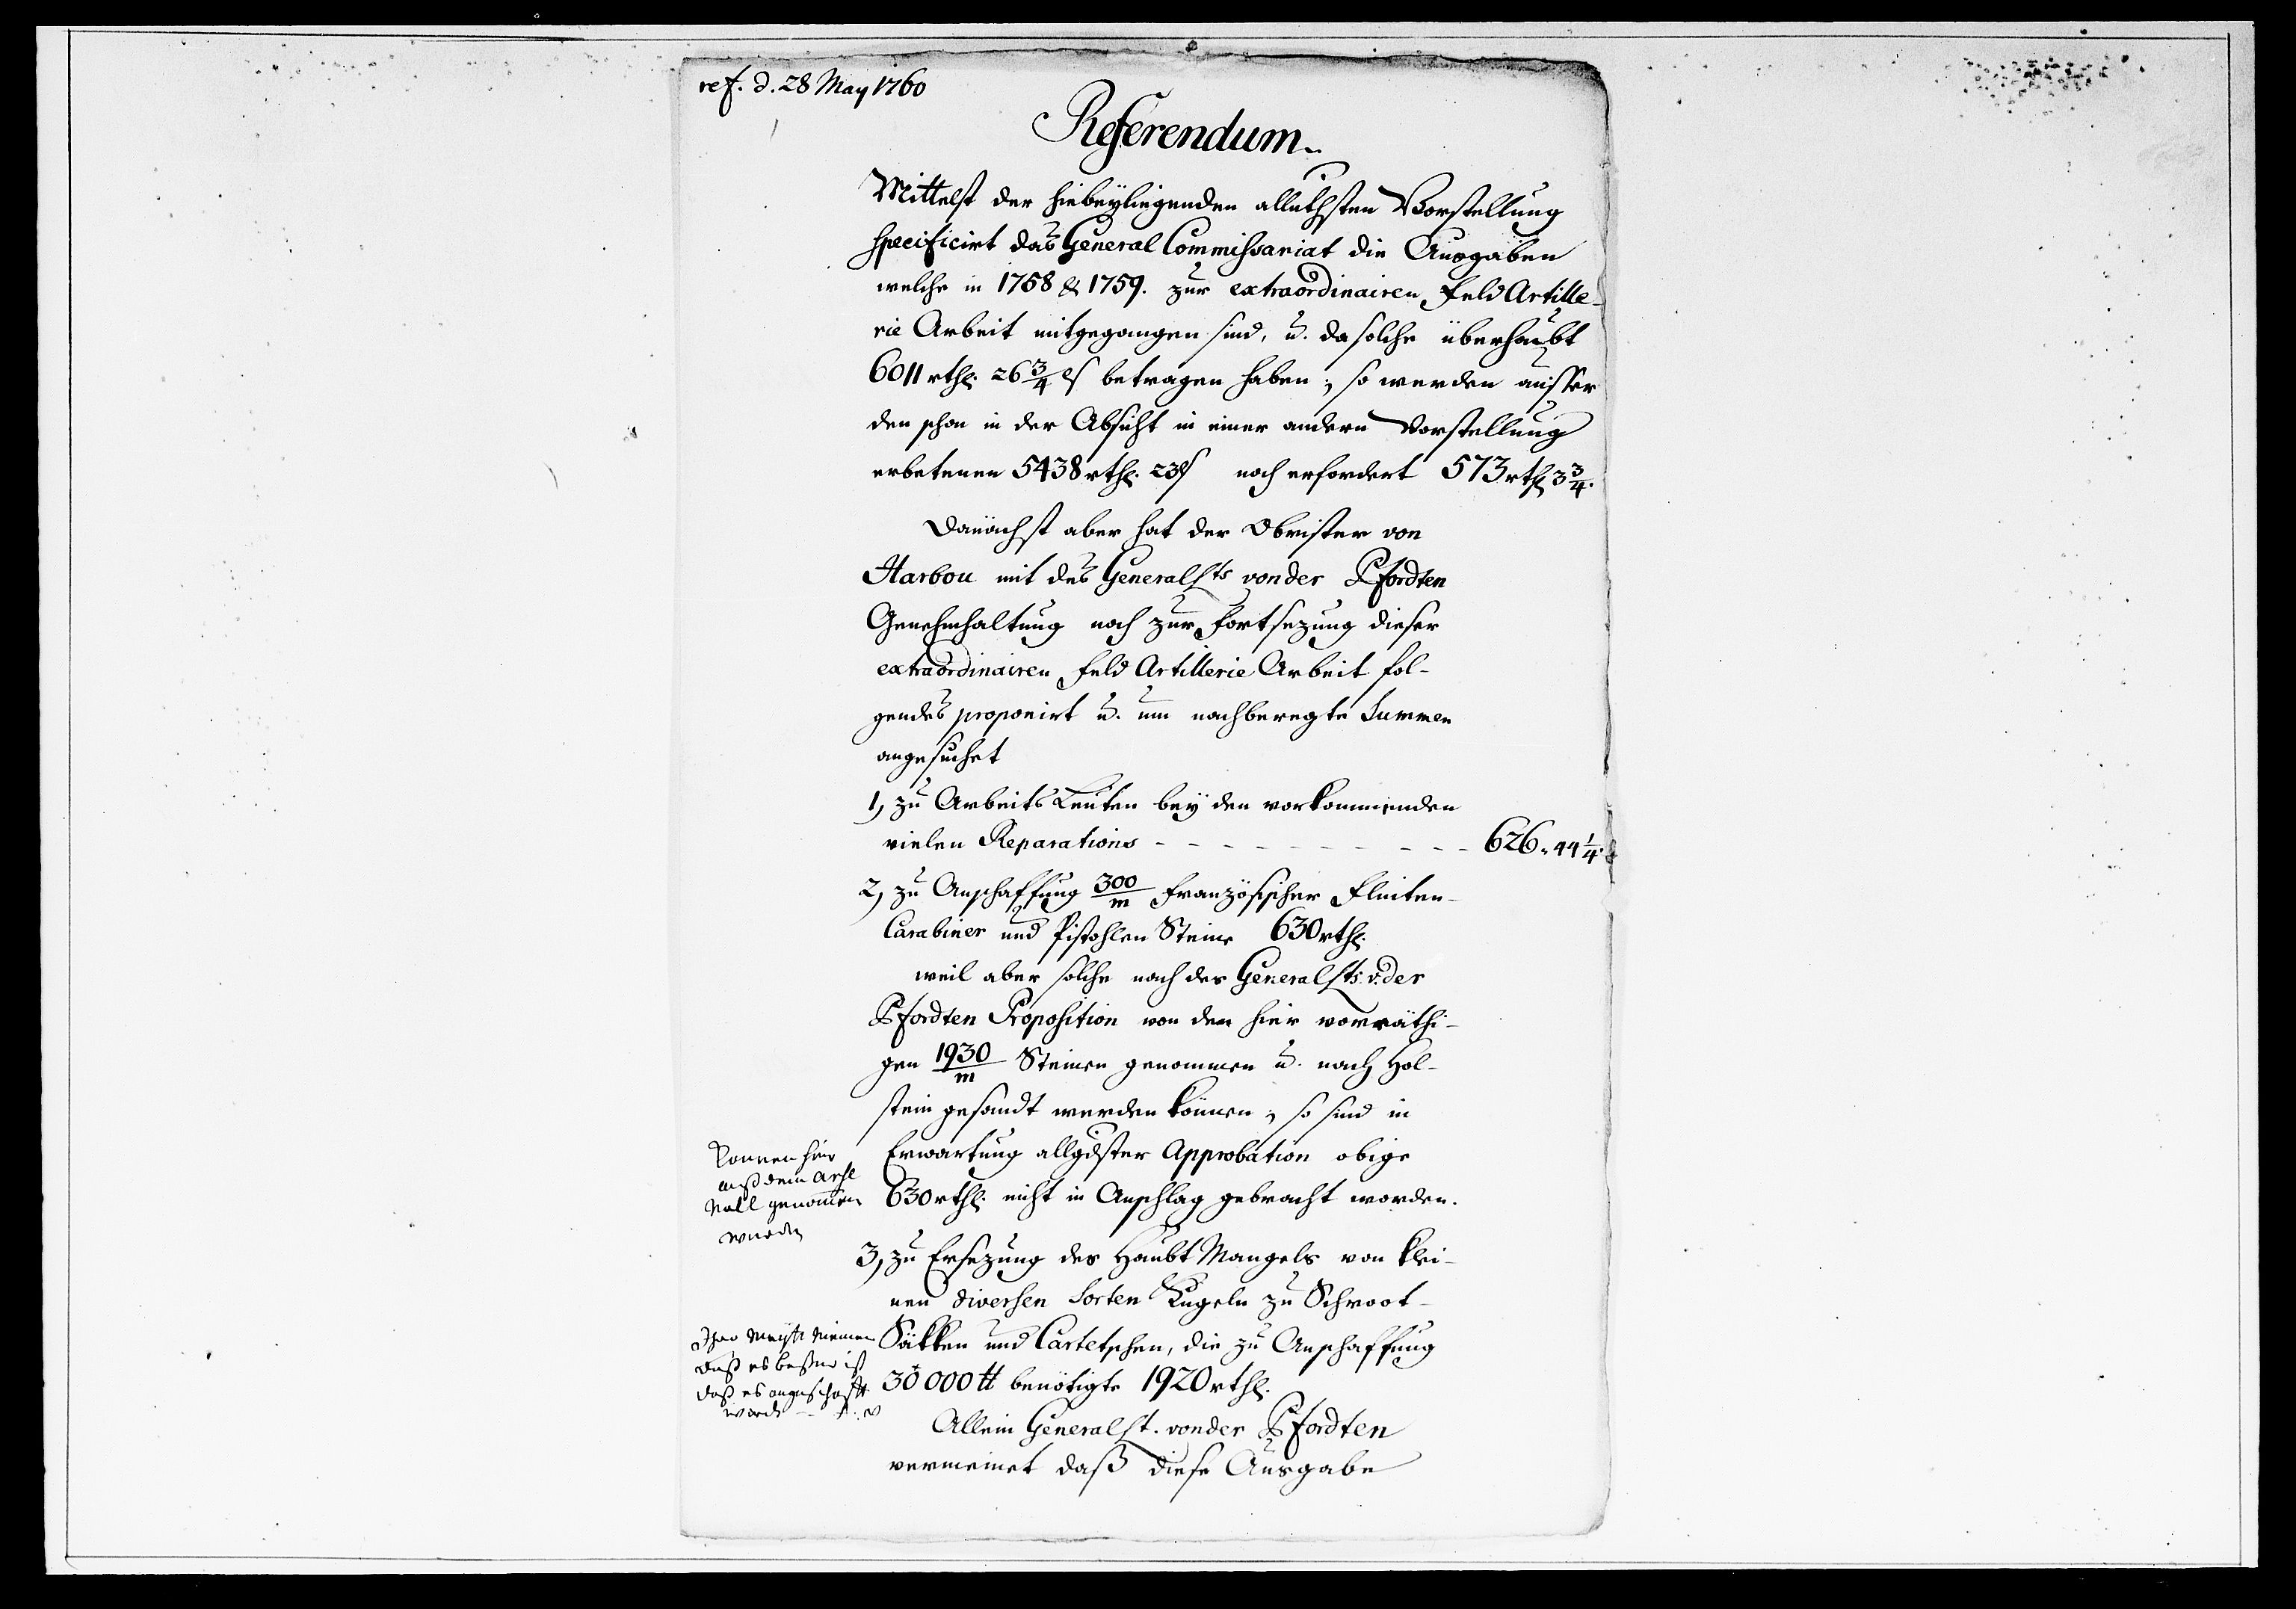 ref. d. 28 May 1760
Referendum.
Mittelst der hiebeÿliegenden alleruthsten Vorstellung
specificirt das General Commissariat die Ausgaben
welche in 1758 & 1759. zur extraordinairen Feld Artille-
rie Arbeit mitgegangen sind, u. da solche überhaubt
6011 rthl. 26 3/4 ß betragen haben; so werden ausser
den schon in der Absicht in einer andern Vorstellung
erbetenen 5438 rthl. 23 ß noch erfordert 573 rthl 3 3/4.
Danächst aber hat der Obrister von
Harbou mit des General Lts von der Pfordten
Genehmhaltung noch zur Fortsezung dieser
extraordinairen Feld Artillerie Arbeit fol-
gendes proponirt u. um nachberegte Summen
angesuchet
1, zu Arbeits Leuten beÿ den vorkommenden
vielen Reparations - - - - - - - - - - 626 „ 44 1/4.
2, zu Anschaffung 300/m Französischer Flinten-
Carabiner und Pistohlen Steine 630 rthl.
weil aber solche nach des General Lts. v. der
Pfordten Proposition von den hier vorräthi-
gen 1930/m Steinen genommen u. nach Hol-
stein gesandt werden können; so sind in
Erwartung allgdster Approbation obige
630 rthl. nicht in Anschlag gebracht worden.
Konnen hier
auß dem Arse
Nall genommen
werden
3, zu Ersezung des Haubt Mangels von klei-
nen diversen Sorten Kugeln zu Schroot-
Säkken und Cartetschen, die zu Anschaffung
30000 tt benötigte 1920 rthl.
Ihro Maÿtt meinen
daß es beßer ist
daß es angeschafft
werde
Allein General Lt. von der Pfordten
vermeinet daß diese Ausgabe